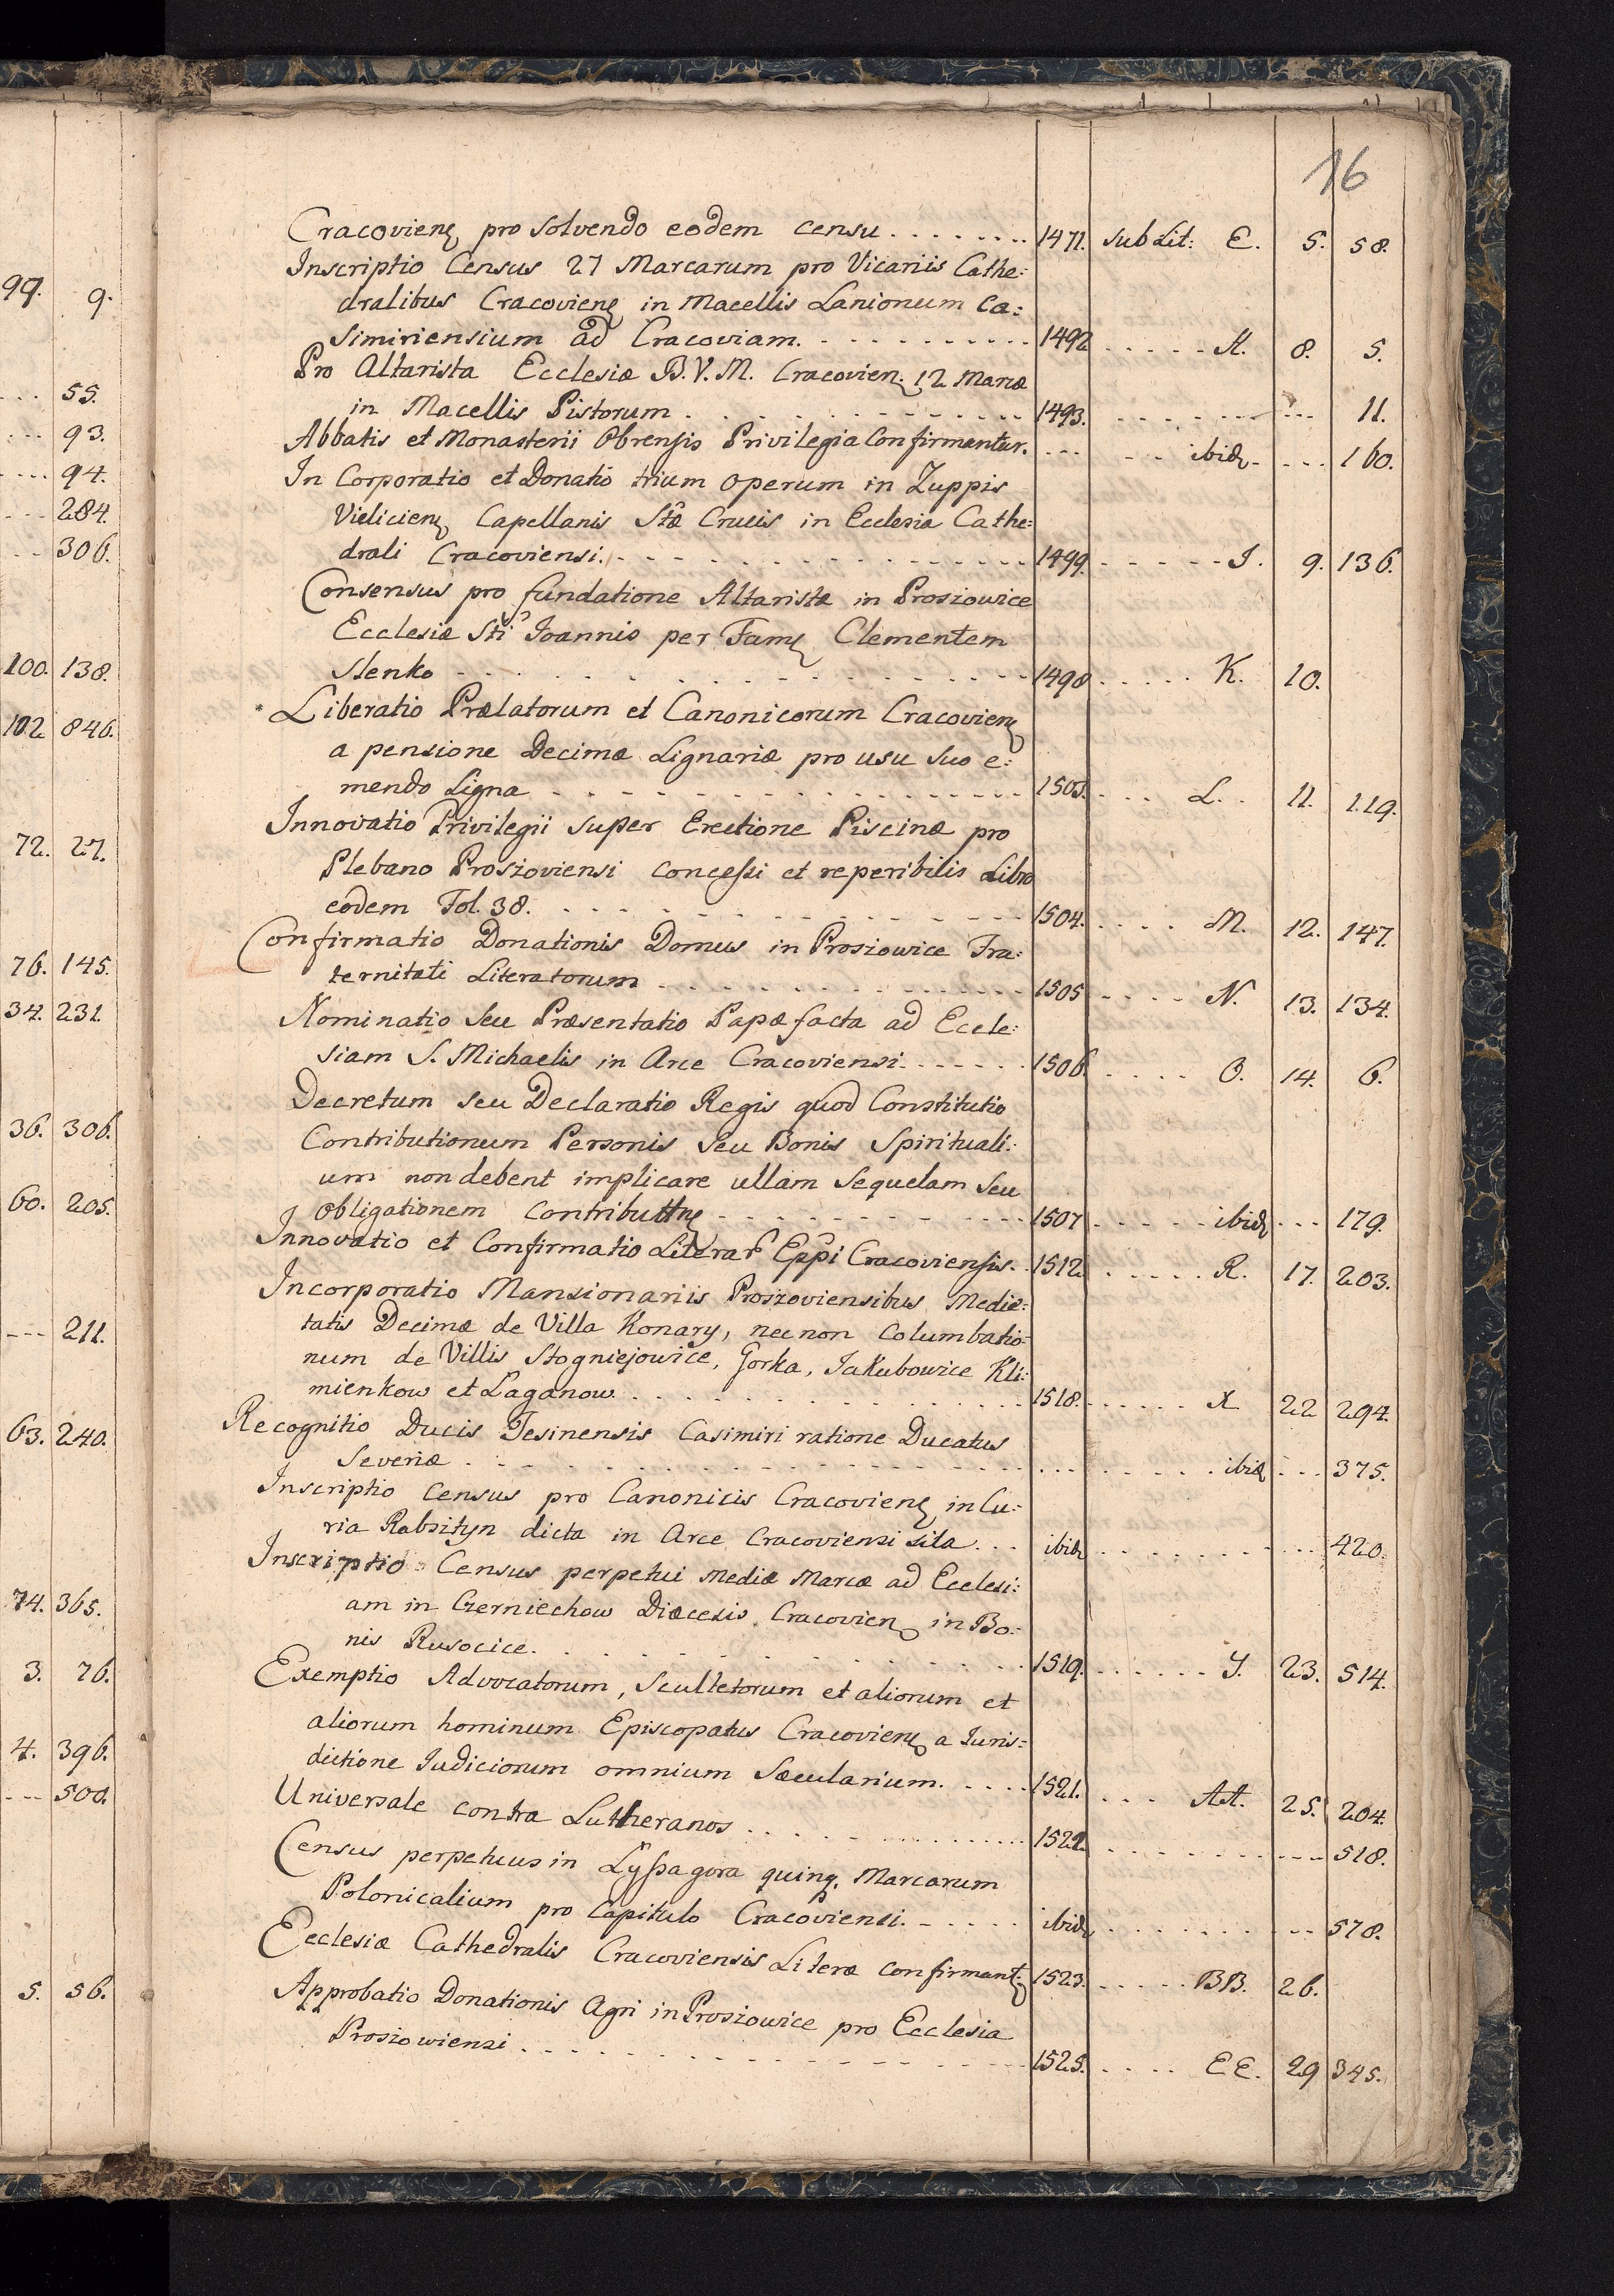 16
99. 9.
55.
93.
94.
284.
306.
100. 138.
102 846.
72. 27.
76. 145.
34. 231.
36. 306.
60. 205.
211.
63. 240.
74. 365.
3. 76.
4. 396.
500.
5. 56.
Cracovien pro solvendo eodem censu . . . . . . . . 1471. sub Lit: E. 5. 58.
Inscriptio Census 27 Marcarum pro Vicariis Cathe:
dralibus Cracovien in Macellis Lanionum Ca:
simiriensium ad Cracoviam. - - - - - - - - - 1492 - - - - - A. 8. 5.
Pro Altarista Ecclesiæ B.V.M. Cracovien. 12 Marcæ
in Macellis Pistorum . . . . . . . . . . 1493. - - - - - - - - - 11.
Abbatis et Monasterii Obrensis Privilegia Confirmantur. . . . - - ibid - - - - 160.
In Corporatio et Donatio trium operum in Zuppis
Vielicien Capellanis Stæ Crucis in Ecclesia Cathe:
drali Cracoviensi. - - - - - - - - - - 1499. - - - - - J. 9. 136.
Consensus pro fundatione Altaristæ in Prosiowice
Ecclesiæ Sti Joannis per Fam Clementem
Slenko - - - - - - - - - - 1498 - - - - - K. 10.
* Liberatio Prælatorum et Canonicorum Cracovien
a pensione Decimæ Lignariæ pro usu suo e:
mendo Ligna - - - - - - - - - - 1503. . . . L. . 11. 119.
Innovatio Privilegii super Erectione Piscinæ pro
Plebano Prosioviensi concessi et reperibilis Libro
eodem Fol. 38. - - - - - - - - - 1504. . . . . M. 12. 147.
Confirmatio Donationis Domus in Prosiowice Fra:
ternitati Literatorum - - - - - - - - 1505 - - - - N. 13. 134.
Nominatio seu Præsentatio Papæ facta ad Eccle:
siam S. Michaelis in Arce Cracoviensi. - - - - - 1506. . . . . O. 14. 6.
Decretum seu Declaratio Regis quod Constitutio
Contributionum Personis seu Bonis Spirituali:
um non debent implicare ullam sequelam seu
obligationem contributtne - - - - - - - - 1507 - - - - - ibid - - - 179.
Innovatio et Confirmatio Literar Eppi Cracoviensis. . 1512 - - - - - R. 17. 203.
Incorporatio Mansionariis Proszoviensibus Medie:
tatis Decimæ de Villa Konary, necnon Columbatio:
num de Villis Stogniejowice, Gorka, Jakubowice Kli:
mienkow et Laganow . . . . . . . . . . 1518. - - - - - X 22 294.
Recognitio Ducis Tesinensis Casimiri ratione Ducatus
Severiæ . - - - - - - - - - . . . . . . . . ibid - - - 375.
Inscriptio Census pro Canonicis Cracovien in Cu:
ria Rabsityn dicta in Arce Cracoviensi sita . . . ibid - - - - - - - - - 420.
Inscriptio Census perpetui mediæ Marcæ ad Ecclesi:
am in Czerniechow Diæcesis Cracovien in Bo:
nis Rusocice. . . . . . . . . . . 1519. - - - - - Y. 23. 514.
Exemptio Advocatorum, Scultetorum et aliorum et
aliorum hominum Episcopatus Cracovien a Juris=
dictione Judiciorum omnium Sæcularium. . . . . 1521. . . . AA. 25. 204.
Universale contra Lutheranos . . . . . . . . . 1522 - - - - - - - - - - 518.
Census perpetuus in Lyssa gora quinq. Marcarum
Polonicalium pro Capitulo Cracoviensi. - - - - - ibid - - - - - - - - - 578.
Ecclesiæ Cathedralis Cracoviensis Literæ confirmant. 1523. - - - - BB. 26.
Approbatio Donationis Agri in Prosiowice pro Ecclesia
Prosiowiensi . - - - - - - - - - 1525. . . . . EE. 29 345.